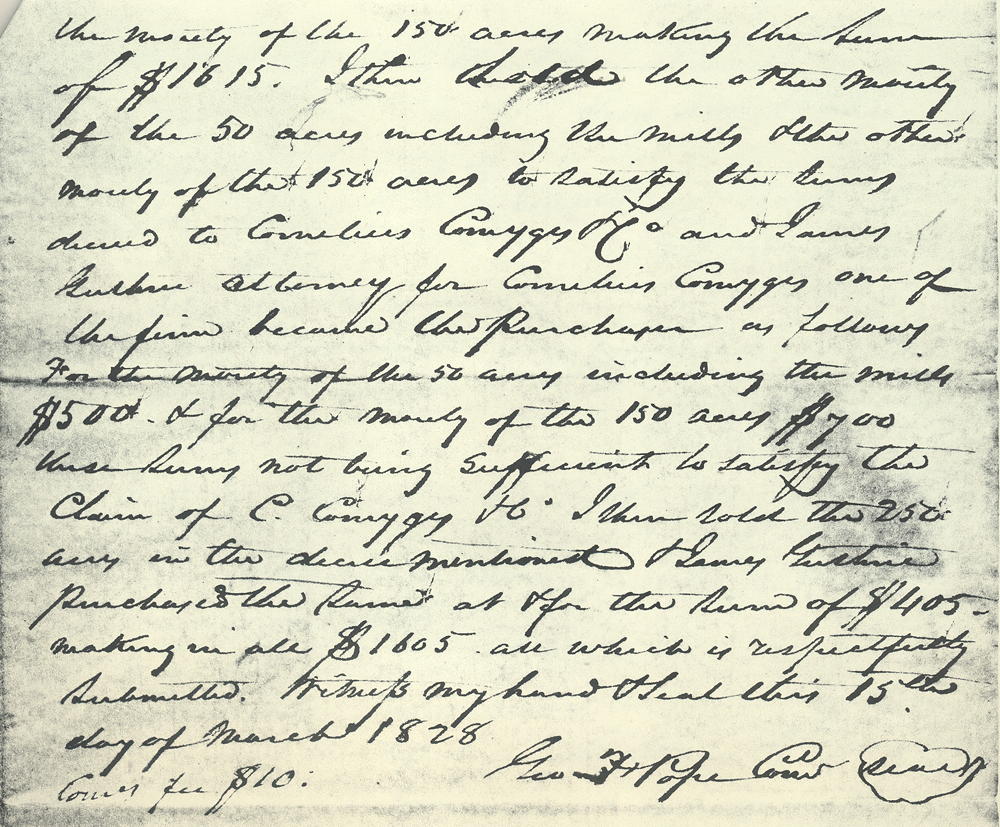 the moiety of the 150 acres making the Sum
of $1615. I then the other moiety
of the 50 acres including the mills & the other
moiety of the 150 acres to satisfy the sums
decreed to Cornelius Comygys & Co and James
Guthrie attorney for Cornelius Comygys one of
the firm became the Purchaser as follows
For the moiety of the 50 acres including the mills
$500. & for the moiety of the 150 acres $700
these sums not being sufficient to satisfy the
Claim of C. Comygys & Co I then sold the 250
acres in the decree mentioned & James Guthrie
purchased the same at & for the sum of $405-
making in all $1605 all which is respectfully
submitted. Witness my hand & Seal this 15th
day of March 1828
Geo F H Pope Comr Seal
Comrs fee $10: